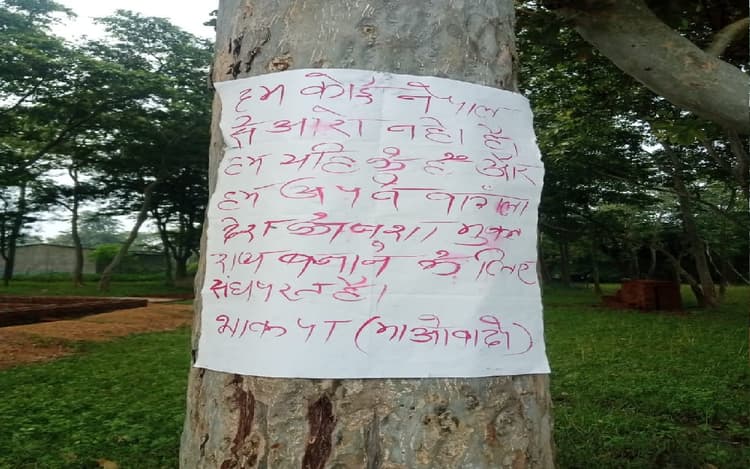 हम कोई नेपाल
से आरो नहे। हैं।
हम यहि के हैं और
हम अपने
देश को नशा मुक्त
राज्य बनाने के लिए
संघर्षरत हैं।
भाकपा (माओवादी)